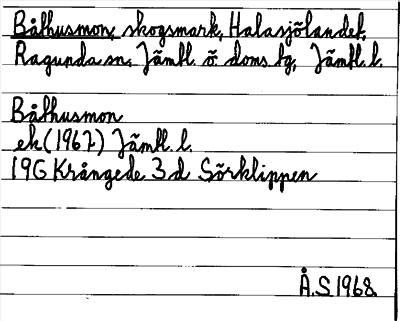 Båthusmon, skogsmark, Halasjölandet,
Ragunda sn, Jämtl. ö. doms. tg, Jämtl. l.
Båthusmon
ek (1967) Jämtl. l.
19G Krångede 3 d Sörklippen
Å.S 1968